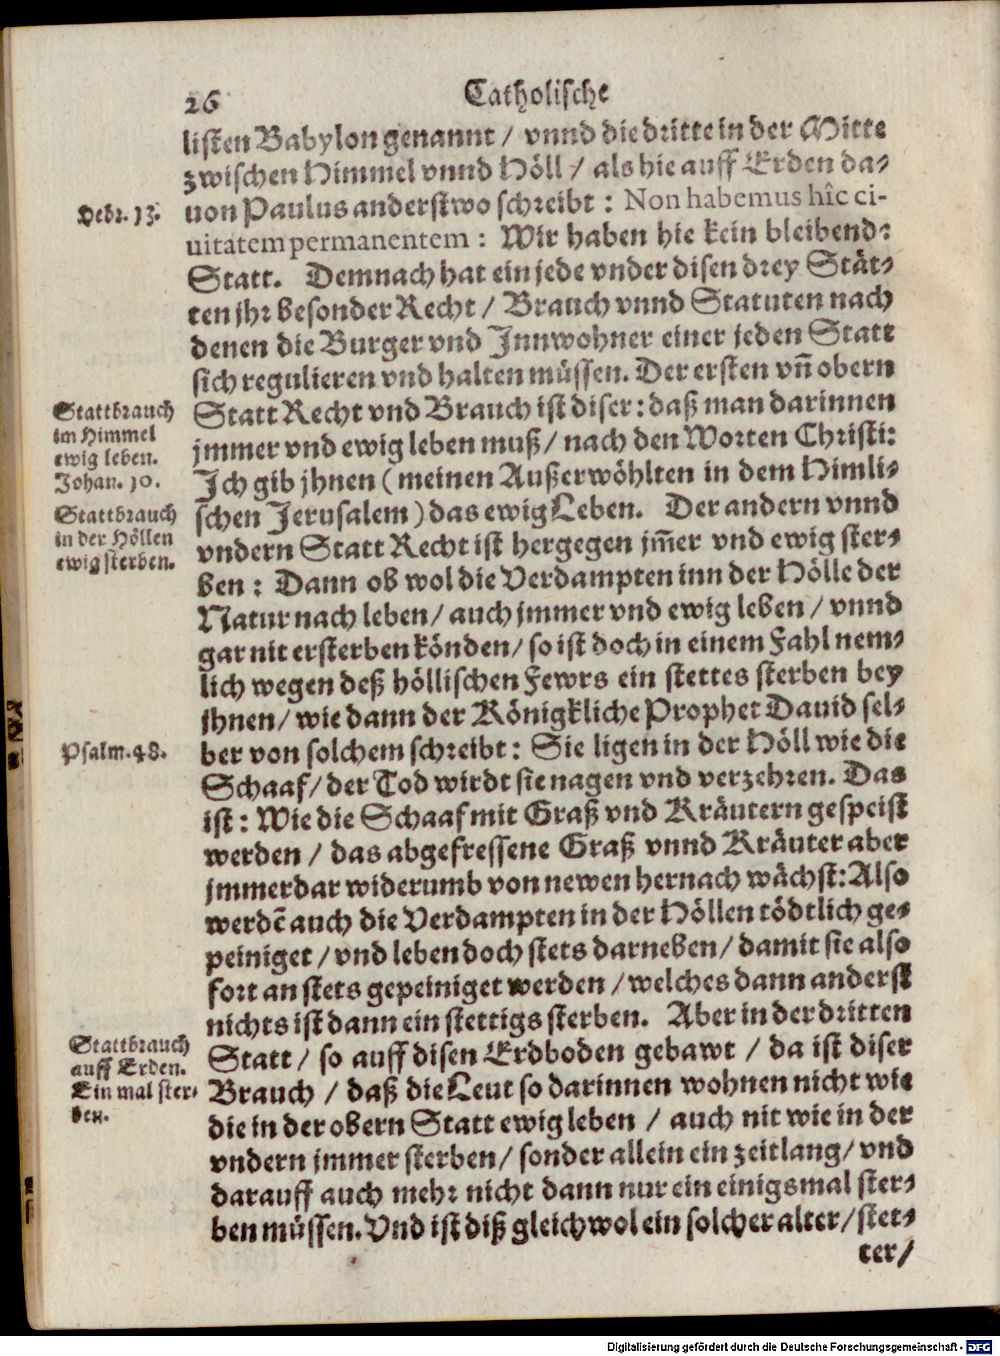 26 Catholische
listen Babylon genannt / vnnd die dritte in der Mitte
zwischen Himmel vnnd Höll / als hie auff Erden da-
Hebr. 13. uon Paulus anderstwo schreibt : Non habemus hîc ci-
uitatem permanentem : Wir haben hie kein bleibend:
Statt. Demnach hat ein jede vnder disen drey Stät-
ten jhr besonder Recht / Brauch vnnd Statuten nach
denen die Burger vnd Innwohner einer jeden Statt
sich regulieren vnd halten müssen. Der ersten vñ obern
Statt Recht vnd Brauch ist diser : daß man darinnen
jmmer vnd ewig leben muß / nach den Worten Christi:
Ich gib jhnen ( meinen Außerwöhlten in dem Himli-
schen Jerusalem ) das ewig Leben. Der andern vnnd
vndern Statt Recht ist hergegen jm̃er vnd ewig ster-
ben : Dann ob wol die Verdampten inn der Hölle der
Natur nach leben / auch jmmer vnd ewig leben / vnnd
gar nit ersterben könden / so ist doch in einem Fahl nem-
lich wegen deß höllischen Fewrs ein stettes sterben bey
jhnen / wie dann der Königkliche Prophet Dauid sel-
ber von solchem schreibt : Sie ligen in der Höll wie die
Schaaf / der Tod wirdt sie nagen vnd verzehren. Das
ist : Wie die Schaaf mit Graß vnd Kräutern gespeist
werden / das abgefressene Graß vnnd Kräuter aber
jmmerdar widerumb von newen hernach wächst : Also
werdẽ auch die Verdampten in der Höllen tödtlich ge-
peiniget / vnd leben doch stets darneben / damit sie also
fort an stets gepeiniget werden / welches dann anderst
nichts ist dann ein stettigs sterben. Aber in der dritten
Statt / so auff disen Erdboden gebawt / da ist diser
Brauch / daß die Leut so darinnen wohnen nicht wie
die in der obern Statt ewig leben / auch nit wie in der
vndern jmmer sterben / sonder allein ein zeitlang / vnd
darauff auch mehr nicht dann nur ein einigsmal ster-
ben müssen. Vnd ist diß gleichwol ein solcher alter / stet-
ter /
Stattbrauch
im Himmel
ewig leben.
Johan. 10.
Stattbrauch
in der Höllen
ewig sterben.
Psalm. 48.
Stattbrauch
auff Erden.
Ein mal ster-
ben.
Digitalisierung gefördert durch die Deutsche Forschungsgemeinschaft - DFG